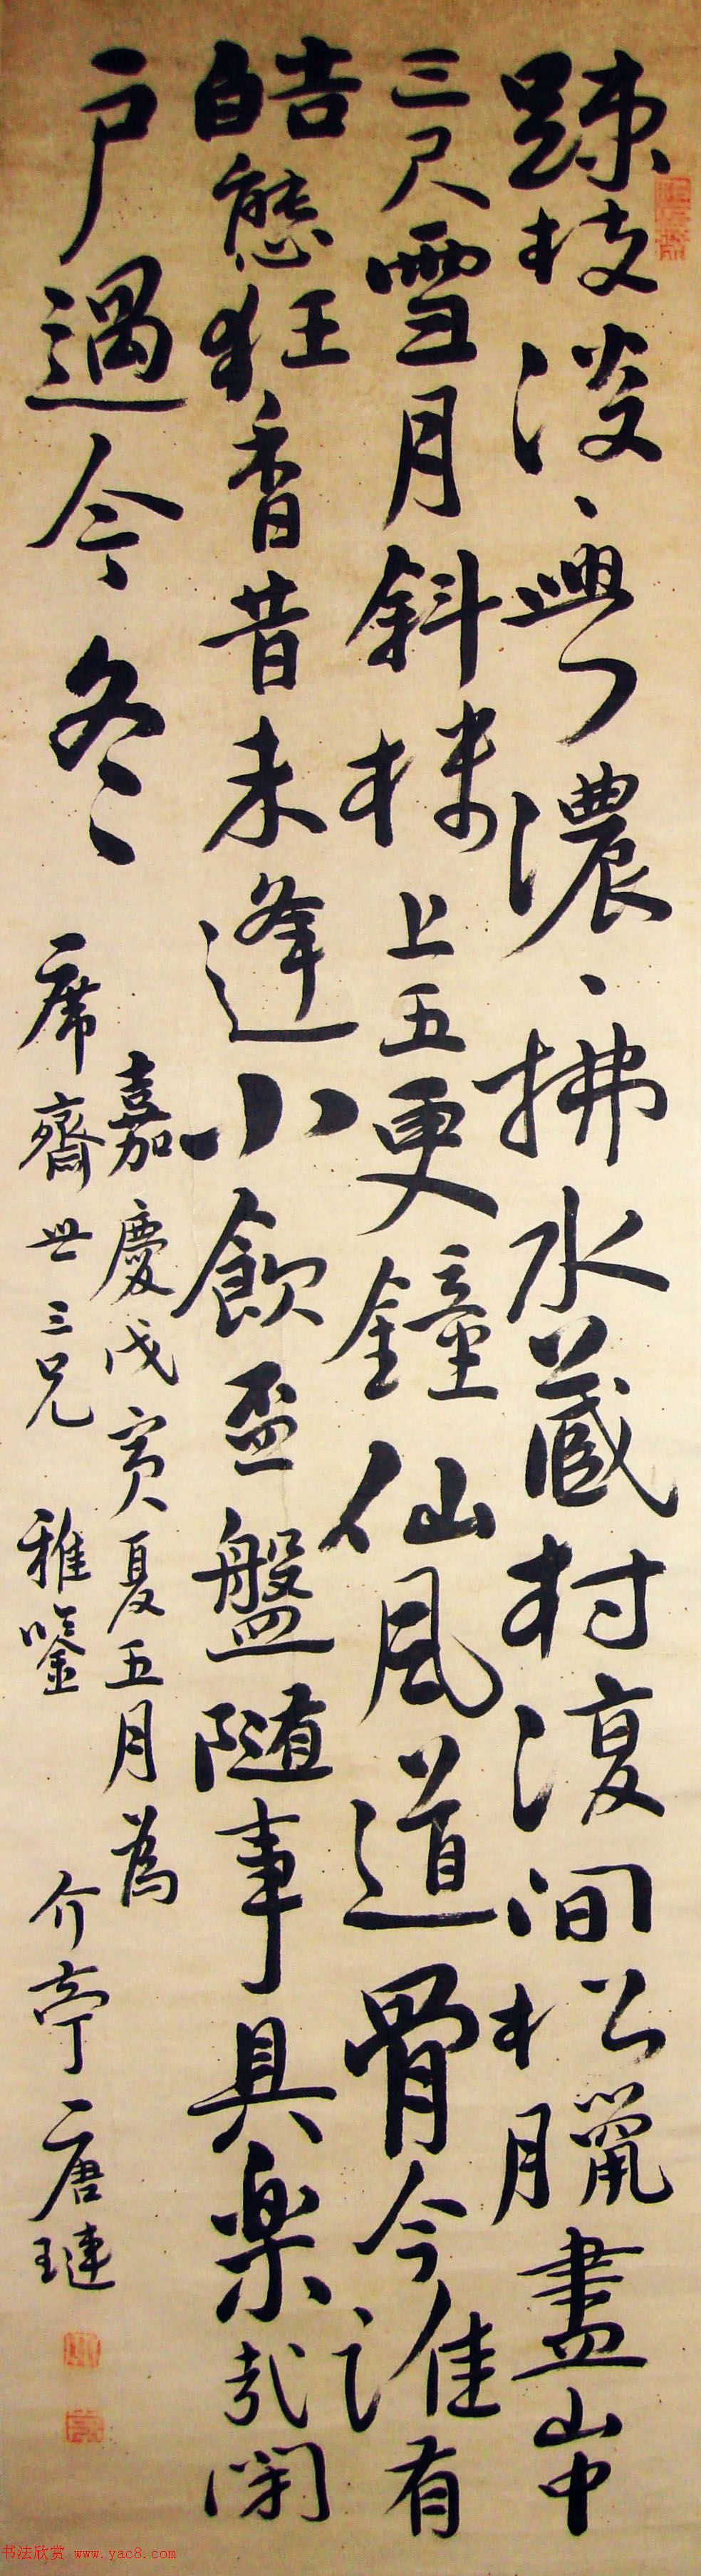 疎枝淡、興濃、拂水藏村復間松臘盡山中
三尺雪月斜樓上五更鐘仙風道骨今誰有
皓態狂香昔未逢小飲盃盤隨事具樂哉閉
戶過今冬
嘉慶戊寅夏五月為
席齊世三兄 雅鑒 介亭唐璉
书法欣赏 www.yac8.com